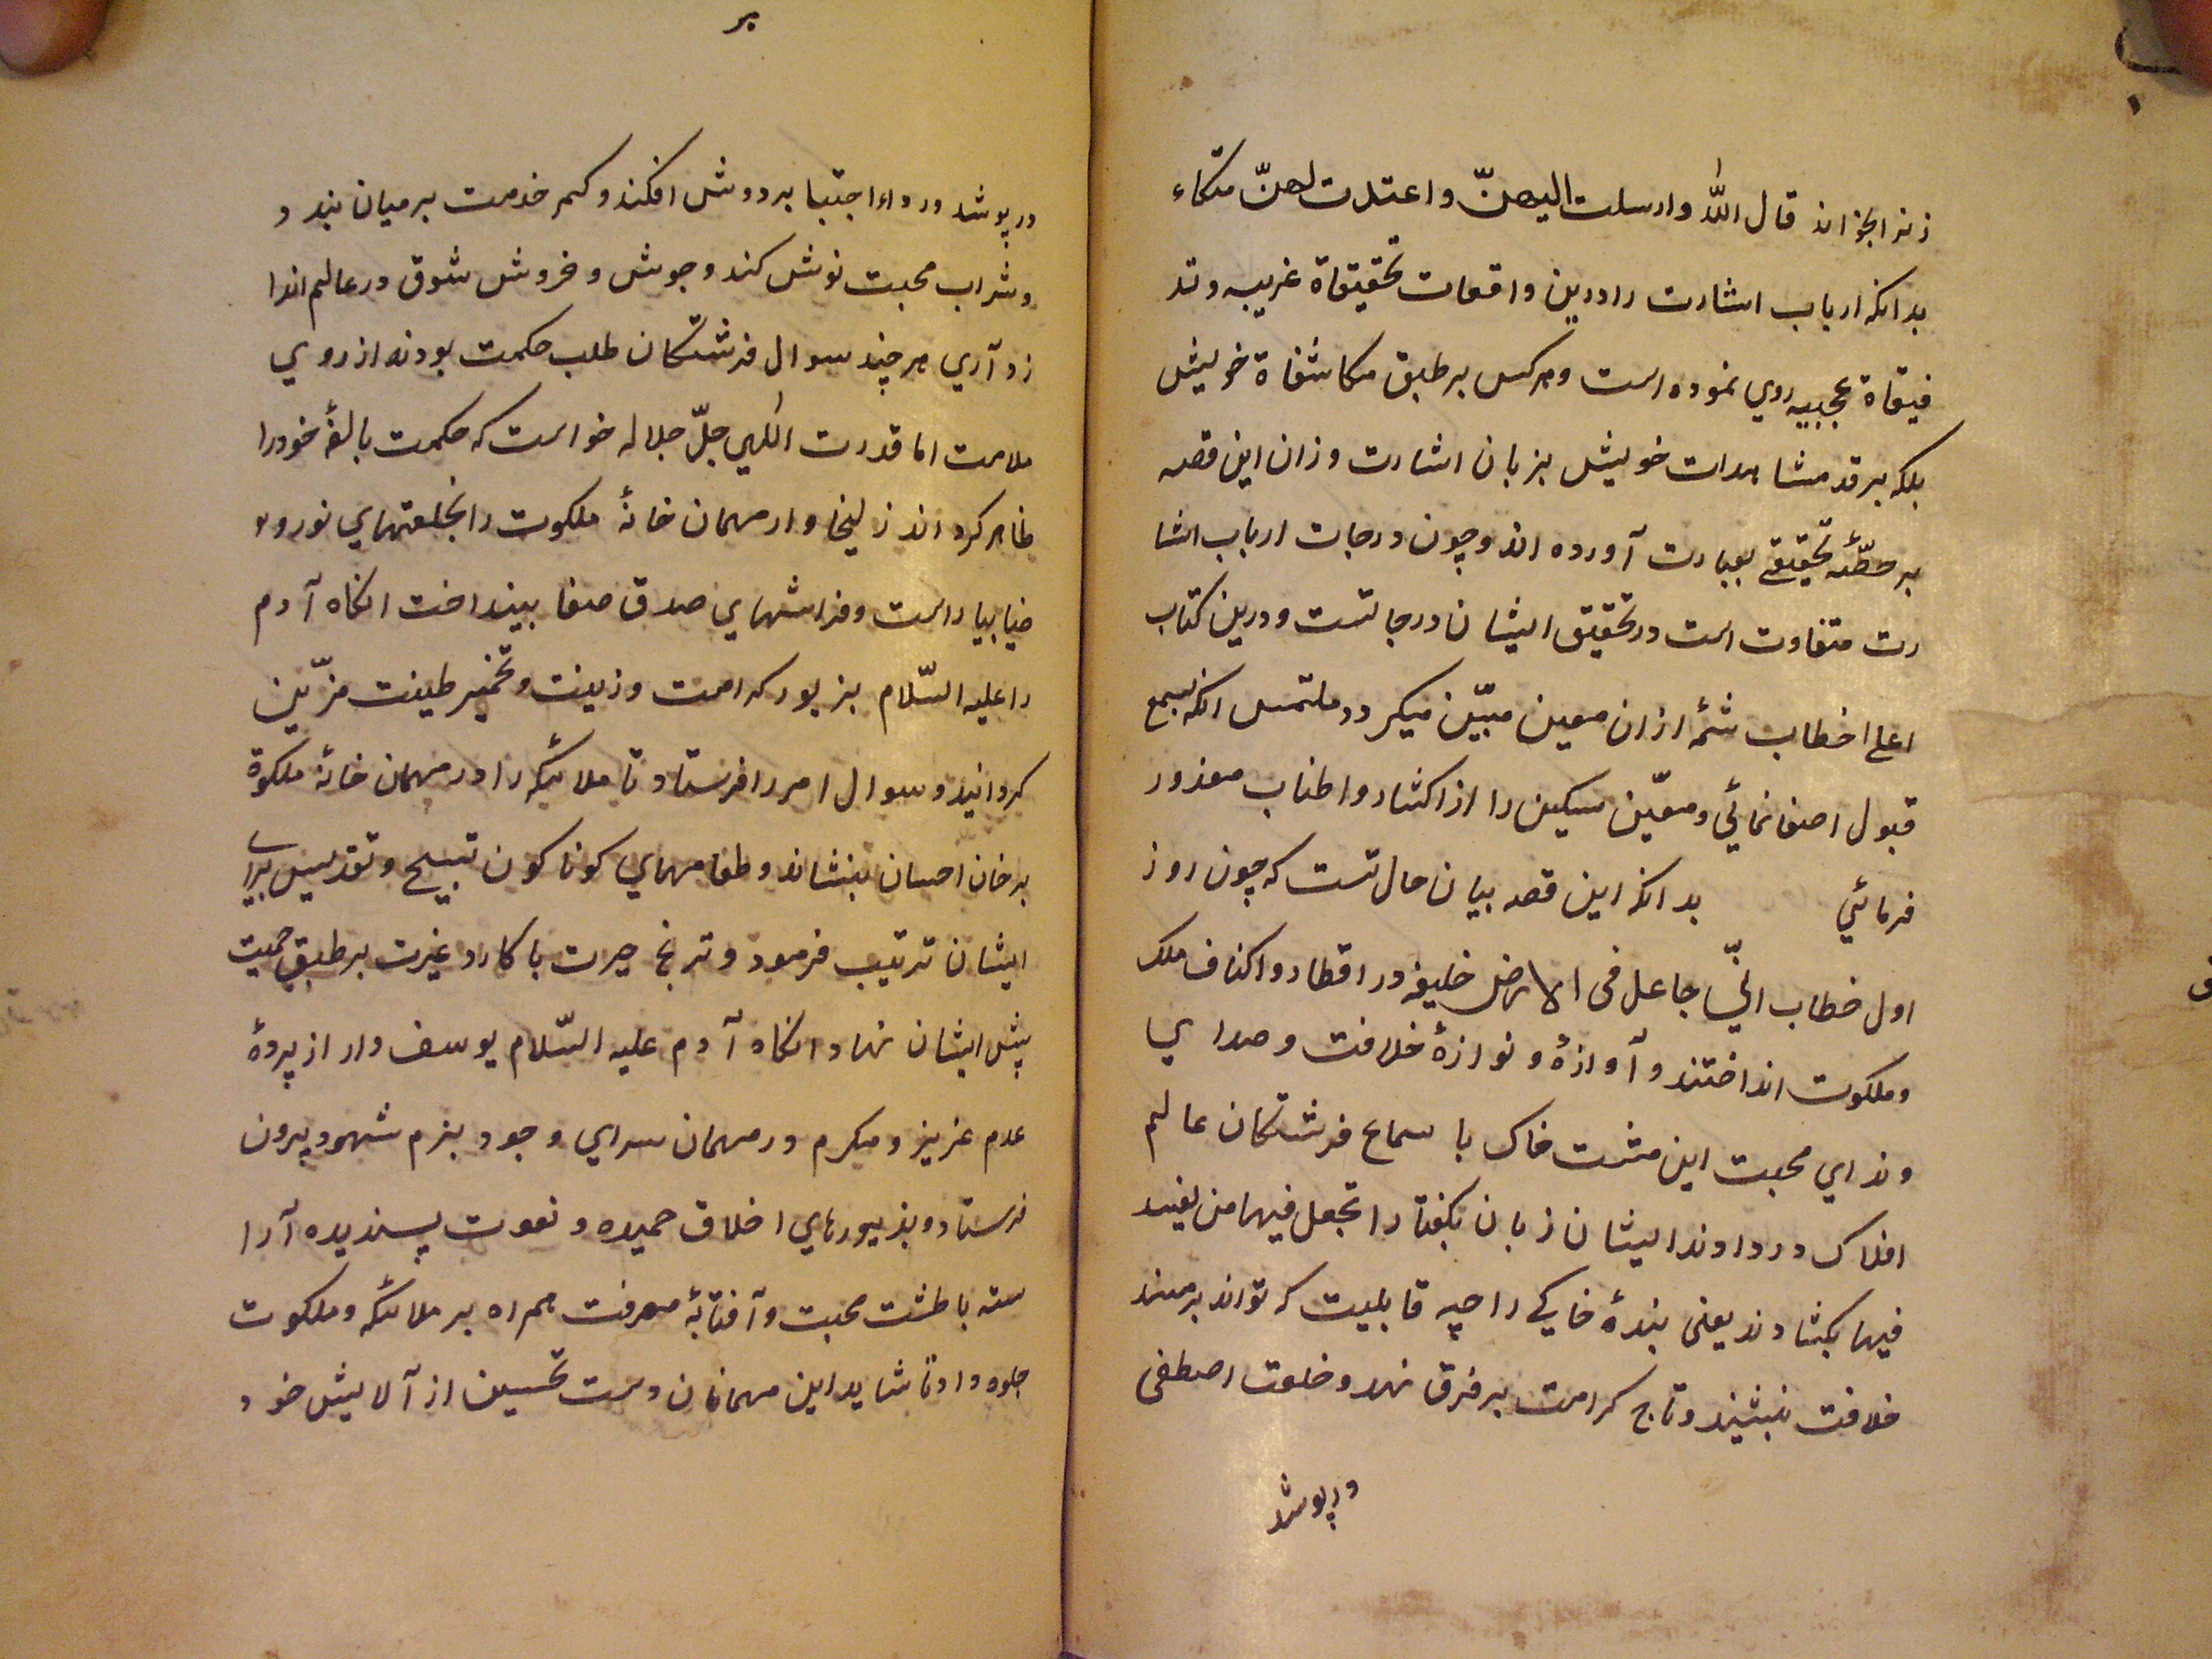 زنرا بخواند قال اللّٰه وارسلت الیهنّ واعتدت لهنّ متکاء
بدانکه ارباب اشارت را درین واقعات تحقیقاة غریبه و تد
قیقاة عجیبه روي نموده است و هرکس بر طبق مکاشفاة خویش
بلکه بر قدر مشاهدات خویش بزبان اشارت وزان این قصه
بر تحقیقے بعبارت آورده اند و چون درجات ارباب اشا
رت متفاوت است در تحقیق ایشان درجاتست و درین کتاب
اعلے خطاب شمهٔ ازان معین مبیّن میکردد ملتمس انکه بسمع
قبول اصغا نمائي و معیّن مسکین را از اکثار و اطناب معذور
فرمائي بدانکه این قصه بیان حال تست که چون روز
اول خطاب انّي جاعل فی الارض خلیفه در اقطار و اکناف ملک
و ملکوت انداختند و آوازهٔ و نوازهٔ خلافت و صداي
و نداي محبت این مشت خاک با سماع فرشتکان عالم
افلاک در دادند ایشان زبان بکفتار اتجعل فیها من یفسد
فیها بکشادند یعنی بندهٔ خاکي را چه قابلیت که تواند بر مسند
خلافت بنشیند و تاج کرامت بر فرق نهد و خلعت اصطفی
درپوشد
درپوشد و رداء اجتبا بر دوش افکند و کمر خدمت بر میان بندد
و شراب محبت نوش کند و جوش و خروش شوق در عالم اندا
زد آري هر چند سوال فرشتکان طلب حکمت بود نه از روي
ملامت اما قدرت الٰهي جلّ جلاله خواست که حکمت بالغهٔ خود را
ظاهر کرداند زلیخا وار مهمان خانهٔ ملکوت را بخلعتهاي نور و
ضیا بیاراست و فراشهاي صدق صفا بینداخت انکاه آدم
را علیه السّلام بزیور کرامت و زینت و تخمیر طینت مزّین
کردانید و سوال امر را فرستاد تا ملائکه را در مهمان خانهٔ ملکوة
بر خان احسان بنشاند و طعامهاي کوناکون تسبیح و تقدیس براے
ایشان ترتیب فرمود و ترنج حیرت با کارد غیرت بر طبق حمیت
پیش ایشان نهاد انکاه آدم علیه السّلام یوسف وار از پردهٔ
عدم عزیز و مکرم در مهمان سراي وجود بزم شهود بیرون
فرستاد و بزیورهاي اخلاق حمیده و نعوت پسندیده آرا
سته با طشت محبت و آفتابهٔ معرفت همراه بر ملائکه و ملکوت
جلوه داد تا شاید این مهمانان دست تحسین از آلایش خود